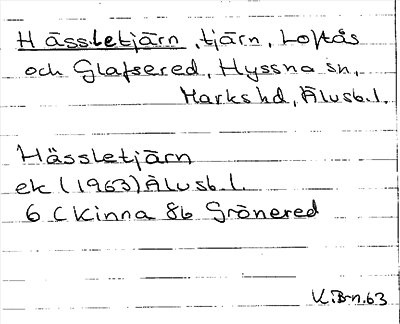 Hässletjärn, tjärn, Loftås
och Glafsered, Hyssna sn,
Marks hd, Älvsb.l.
Hässletjärn
ek (1963) Älvsb.l.
6 C Kinna 8b Grönered
K.Brn.63